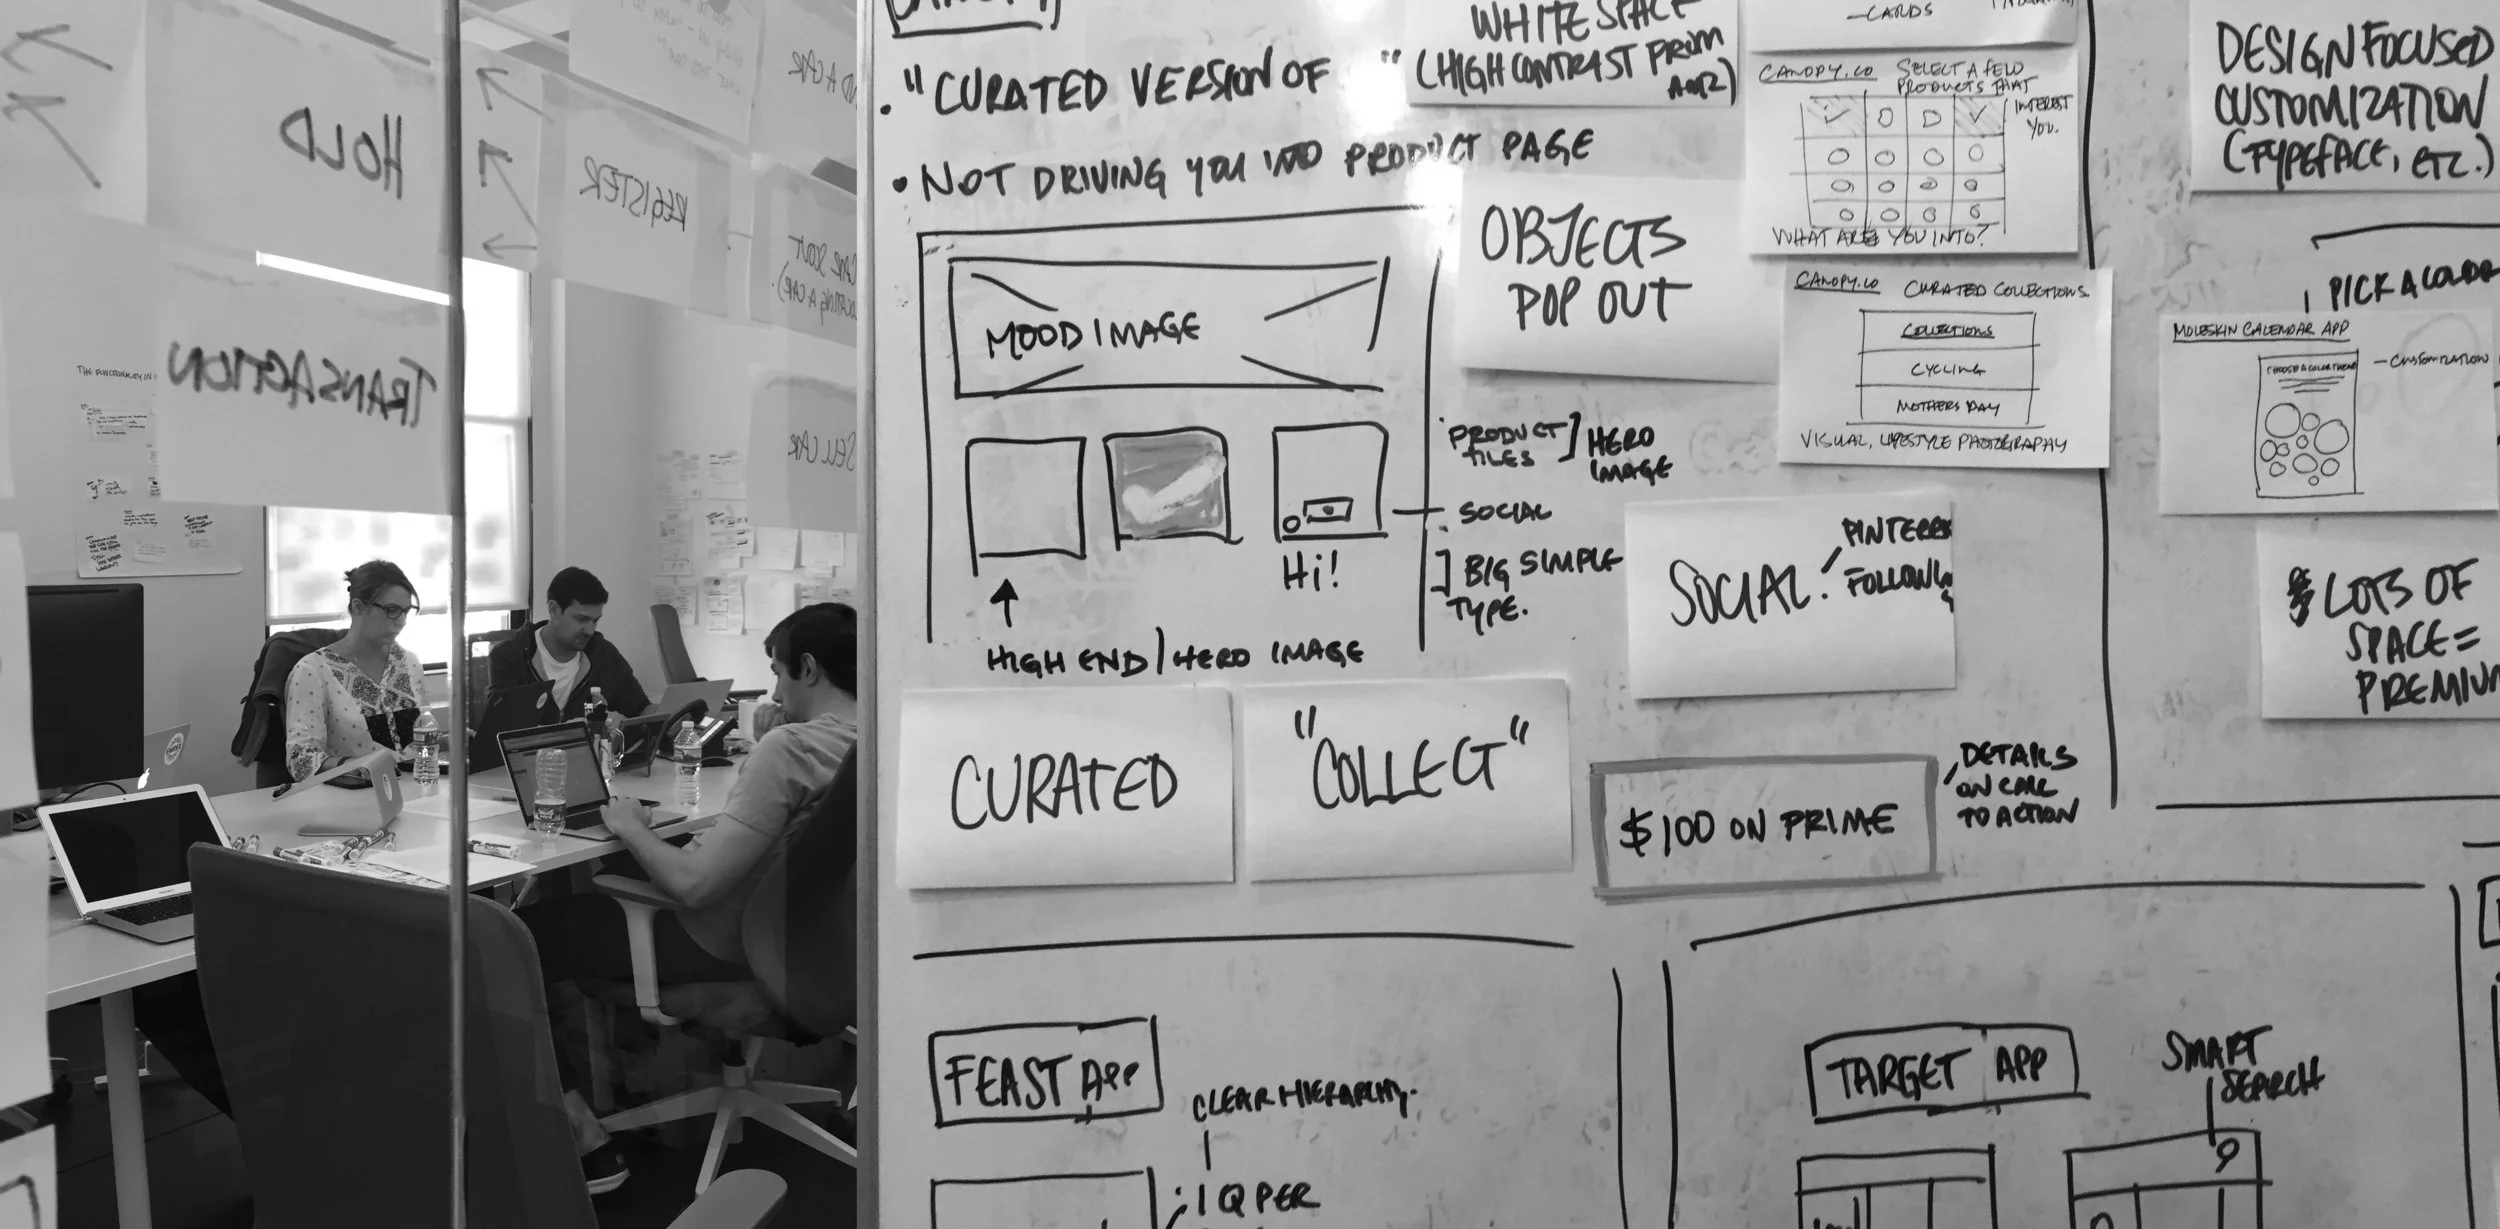 HOLD
REGISTER
TRANSACTION
SELL CAR
THE FUNCTIONALITY IN
• "CURATED VERSION OF "
• NOT DRIVING YOU INTO PRODUCT PAGE
MOOD IMAGE
Hi!
HIGH END/HERO IMAGE
PRODUCT
TILES
] HERO
IMAGE
SOCIAL
] BIG SIMPLE
TYPE.
CURATED
"COLLECT"
WHITE SPACE
(HIGH CONTRAST FROM
OBJECTS
POP OUT
—CARDS
CANOPY.CO SELECT A FEW
PRODUCTS THAT
INTEREST
YOU.
WHAT ARE YOU INTO?
CANOPY.CO CURATED COLLECTIONS.
COLLECTIONS
CYCLING
MOTHERS DAY
VISUAL, LIFESTYLE PHOTOGRAPHY
SOCIAL.
FOLLOWING
$100 ON PRIME
DETAILS
ON CALL
TO ACTION
DESIGN FOCUSED
CUSTOMIZATION
(TYPEFACE, ETC.)
PICK A COLOR
MOLESKIN CALENDAR APP
— CUSTOMIZATION
LOTS OF
SPACE =
PREMIUM
FEAST APP
CLEAR HIERARCHY.
1 Q PER
TARGET APP
SMART
SEARCH